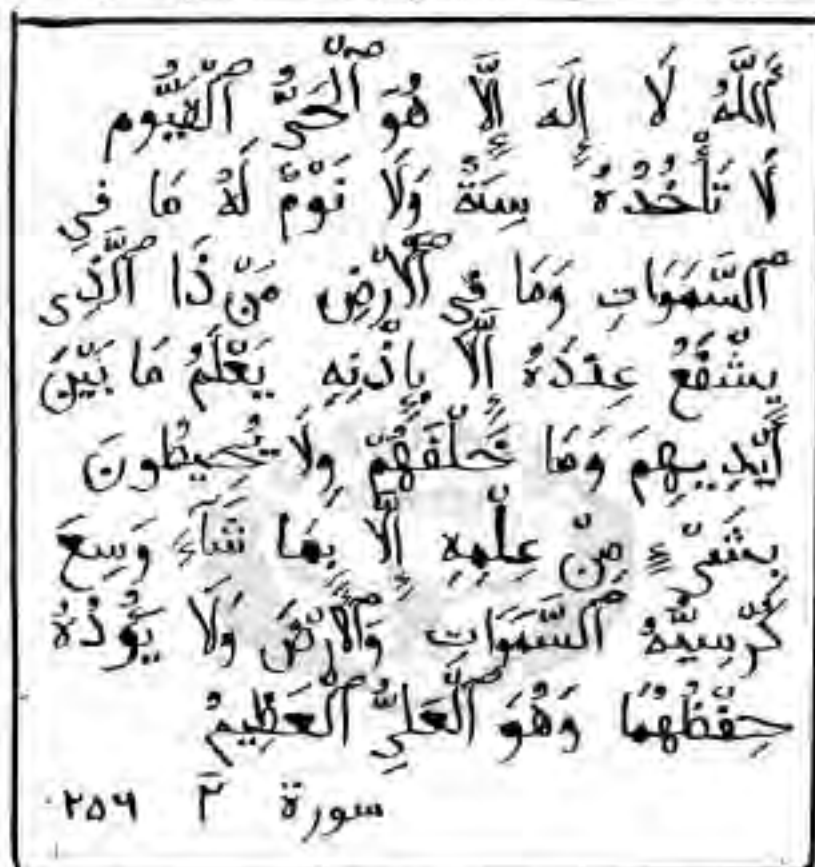 ٱللَّهُ لَا إِلَهَ إِلَّا هُوَ ٱلْحَىُّ ٱلْقَيُّوم
لَا تَأْخُذُهُ سِنَةٌ وَلَا نَوْمٌ لَهُ مَا فِي
ٱلسَّمَوَاتِ وَمَا فِي ٱلْأَرْضِ مَنْ ذَا ٱلَّذِى
يَشْفَعُ عِنْدَهُ إِلَّا بِإِذْنِهِ يَعْلَمُ مَا بَيْنَ
أَيْدِيهِمَ وَمَا خَلْفَهُمْ وَلَا يُحِيطُونَ
بِشَىْءٍ مِنْ عِلْمِهِ إِلَّا بِمَا شَآءَ وَسِعَ
كُرْسِيُّهُ ٱلسَّمَوَاتِ وَٱلْأَرْضَ وَلَا يَؤُدُهُ
حِفْظُهُمَا وَهُوَ ٱلْعَلِيُّ ٱلْعَظِيمُ
سورة ٢ ٢٥٦